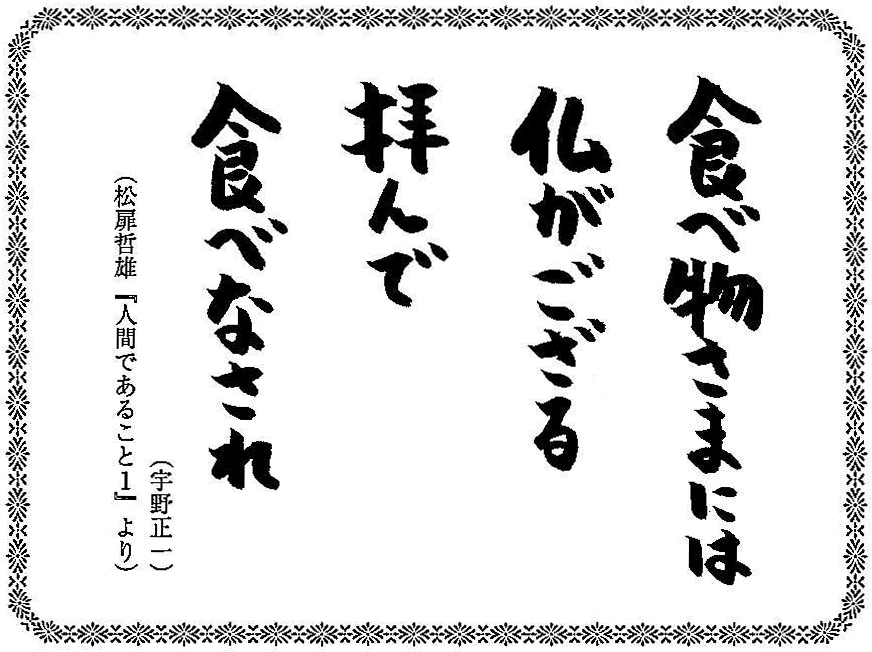 食べ物さまには
仏がござる
拝んで
食べなされ
（宇野正一）
（松扉哲雄『人間であること１』より）